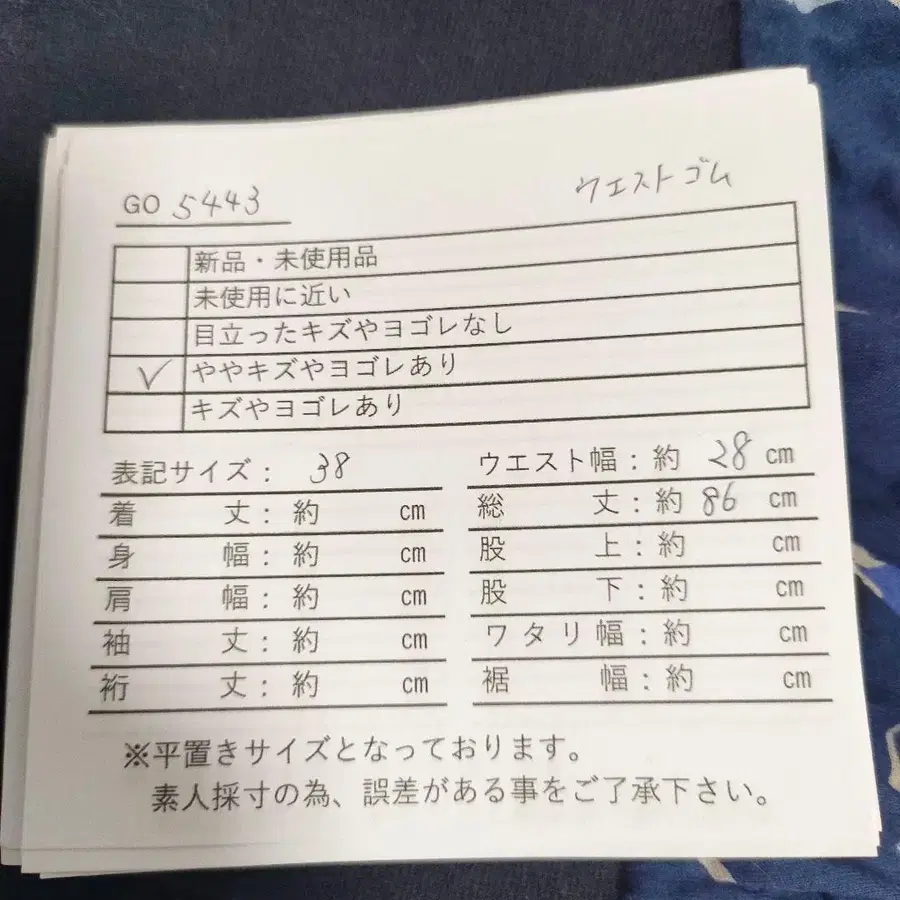 GO 5443
ウエストゴム
新品・未使用品
未使用に近い
目立ったキズやヨゴレなし
✓ ややキズやヨゴレあり
キズやヨゴレあり
表記サイズ： 38
着 丈：約 ㎝
身 幅：約 ㎝
肩 幅：約 ㎝
袖 丈：約 ㎝
裄 丈：約 ㎝
ウエスト幅：約 28 ㎝
総 丈：約 86 ㎝
股 上：約 ㎝
股 下：約 ㎝
ワタリ幅：約 ㎝
裾 幅：約 ㎝
※平置きサイズとなっております。
素人採寸の為、誤差がある事をご了承下さい。